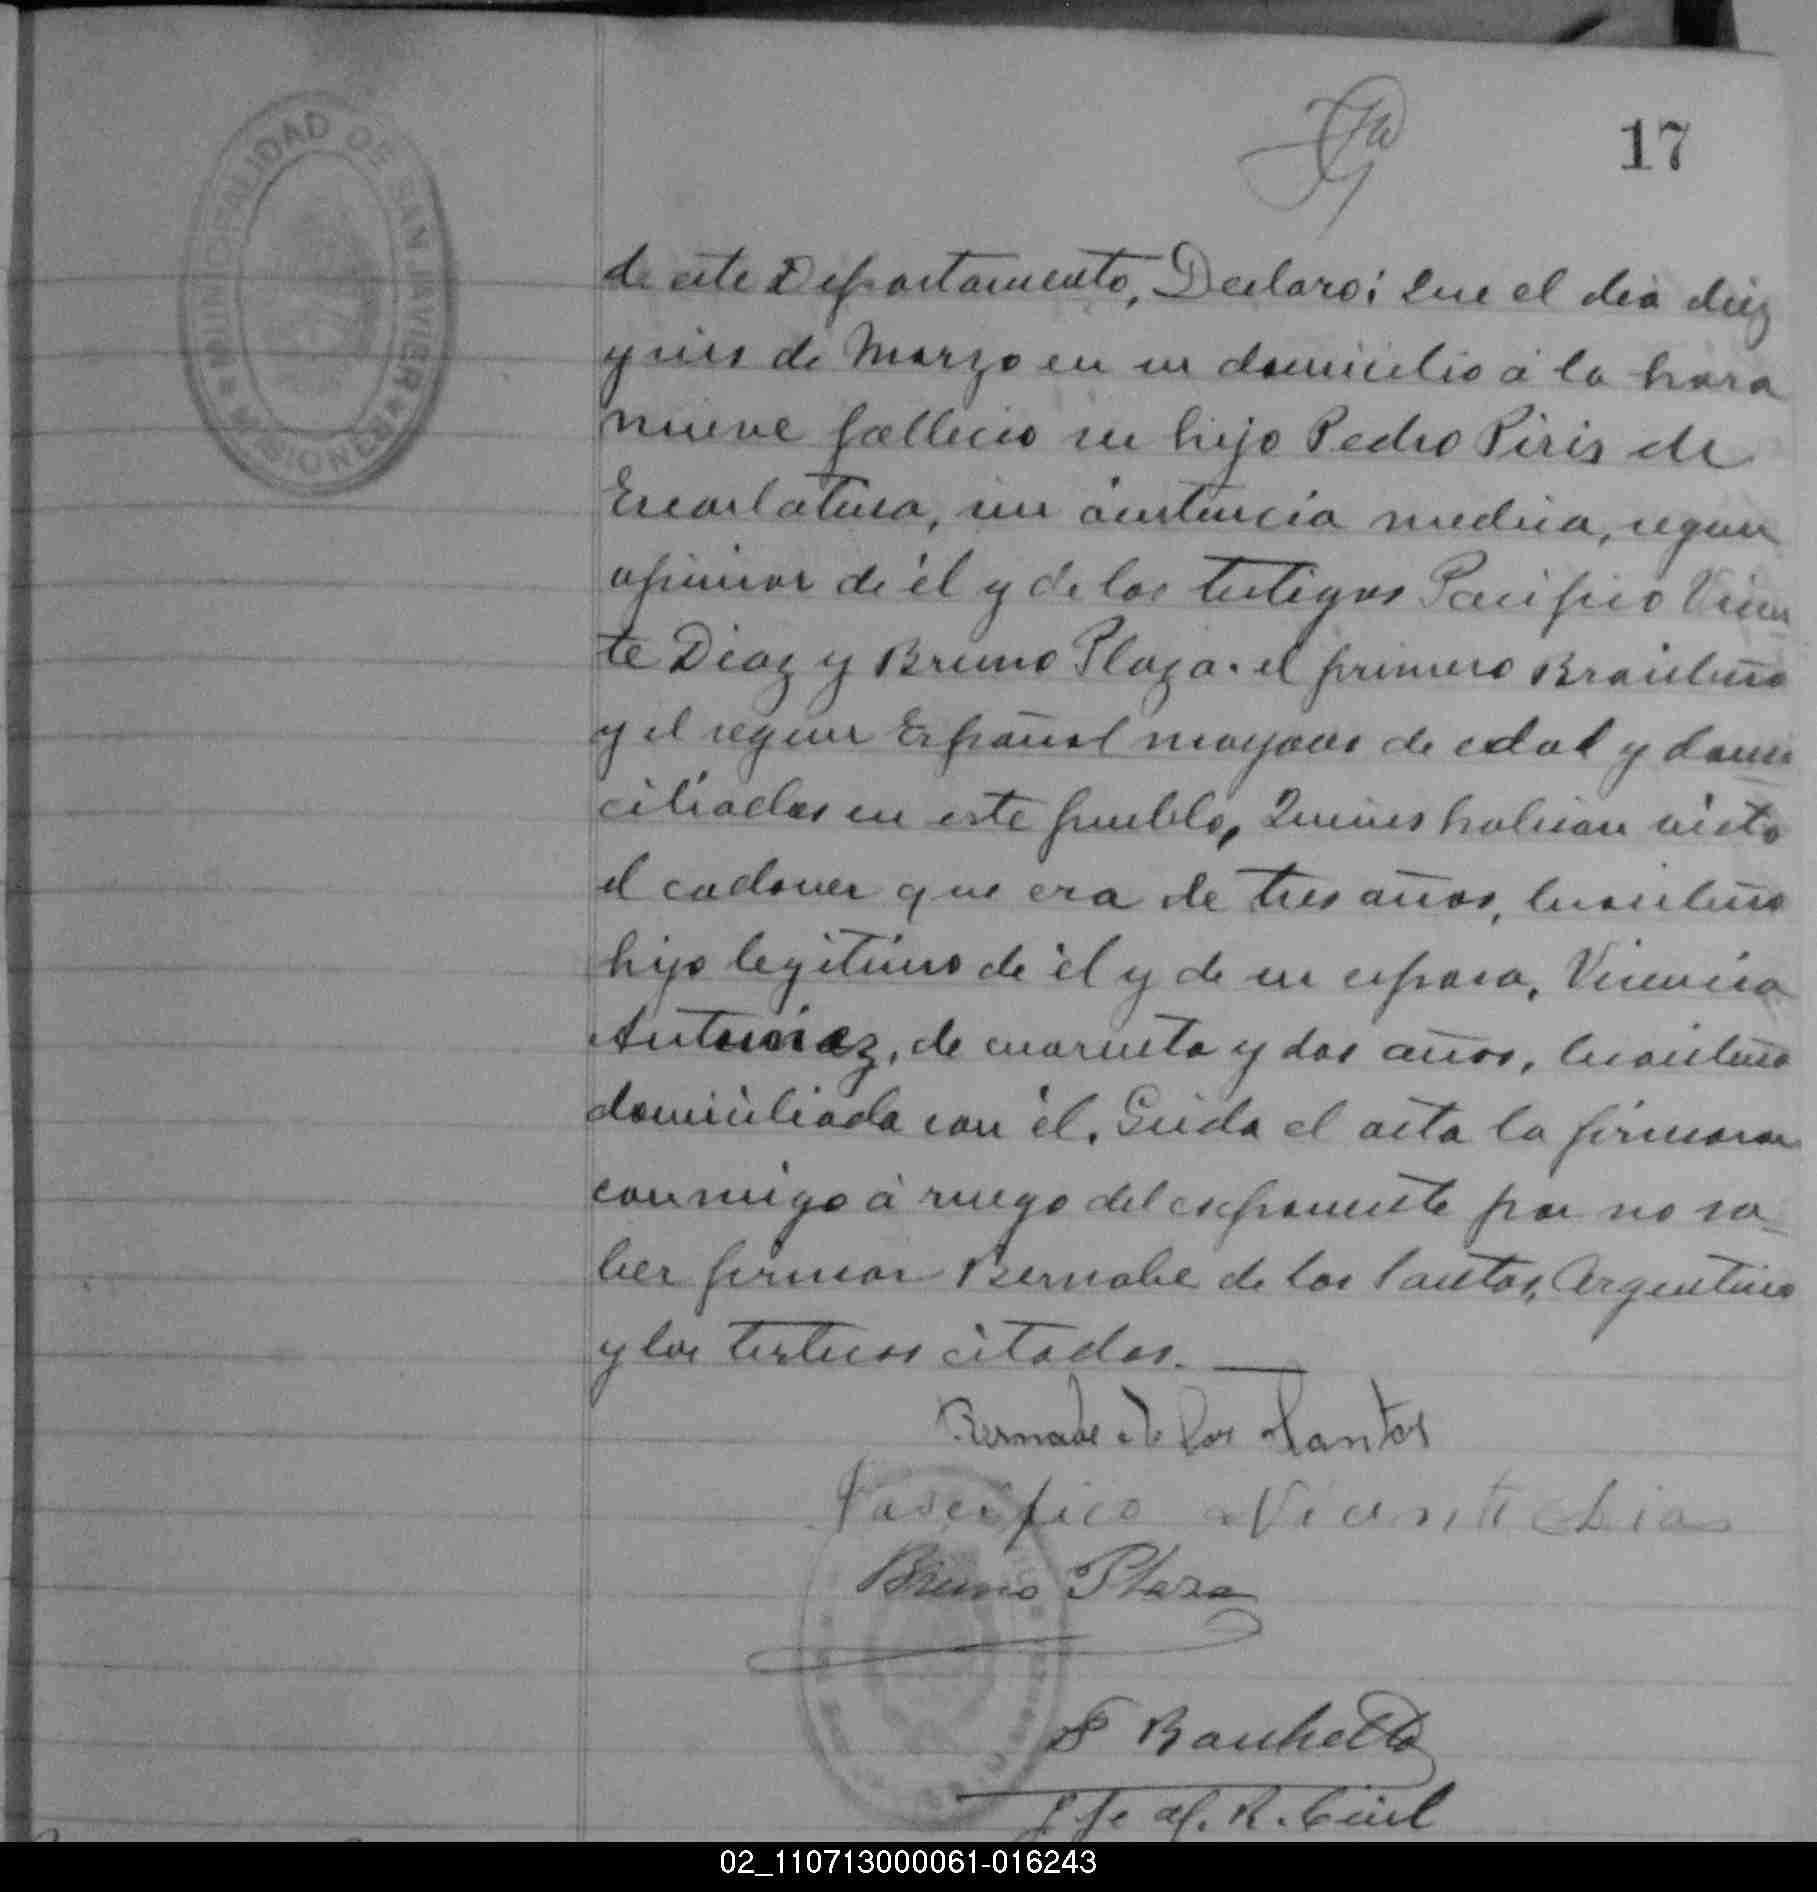 MUNICIPALIDAD DE SAN JAVIER
MISIONES
17
de este Departamento, Declaro: Que el dia diez
y seis de Marzo en su domicilio á la hora
nueve fallecio su hijo Pedro Piris de
Escarlatina, sin asistencia medica, segun
opinion de él y de los testigos Pacifico Vicen
te Diaz y Bruno Plaza. el primero Brasilero
y el segun Español mayores de edad y domi
ciliados en este pueblo, Quienes habian visto
el cadaver que era de tres años, brasilero
hijo legitimo de él y de su esposa, Vicencia
Antunez, de cuarenta y dos años, brasilera
domiciliada con él. Leida el acta la firmaron
conmigo á ruego del exponente por no sa-
ber firmar Bernabe de los Santos, Argentino
y los testigos citados.
Bernabe de los Santos
Pascifico Vicente Dias
Bruno Plaza
Banchetto
Jfe del R. Civil
02_110713000061-016243